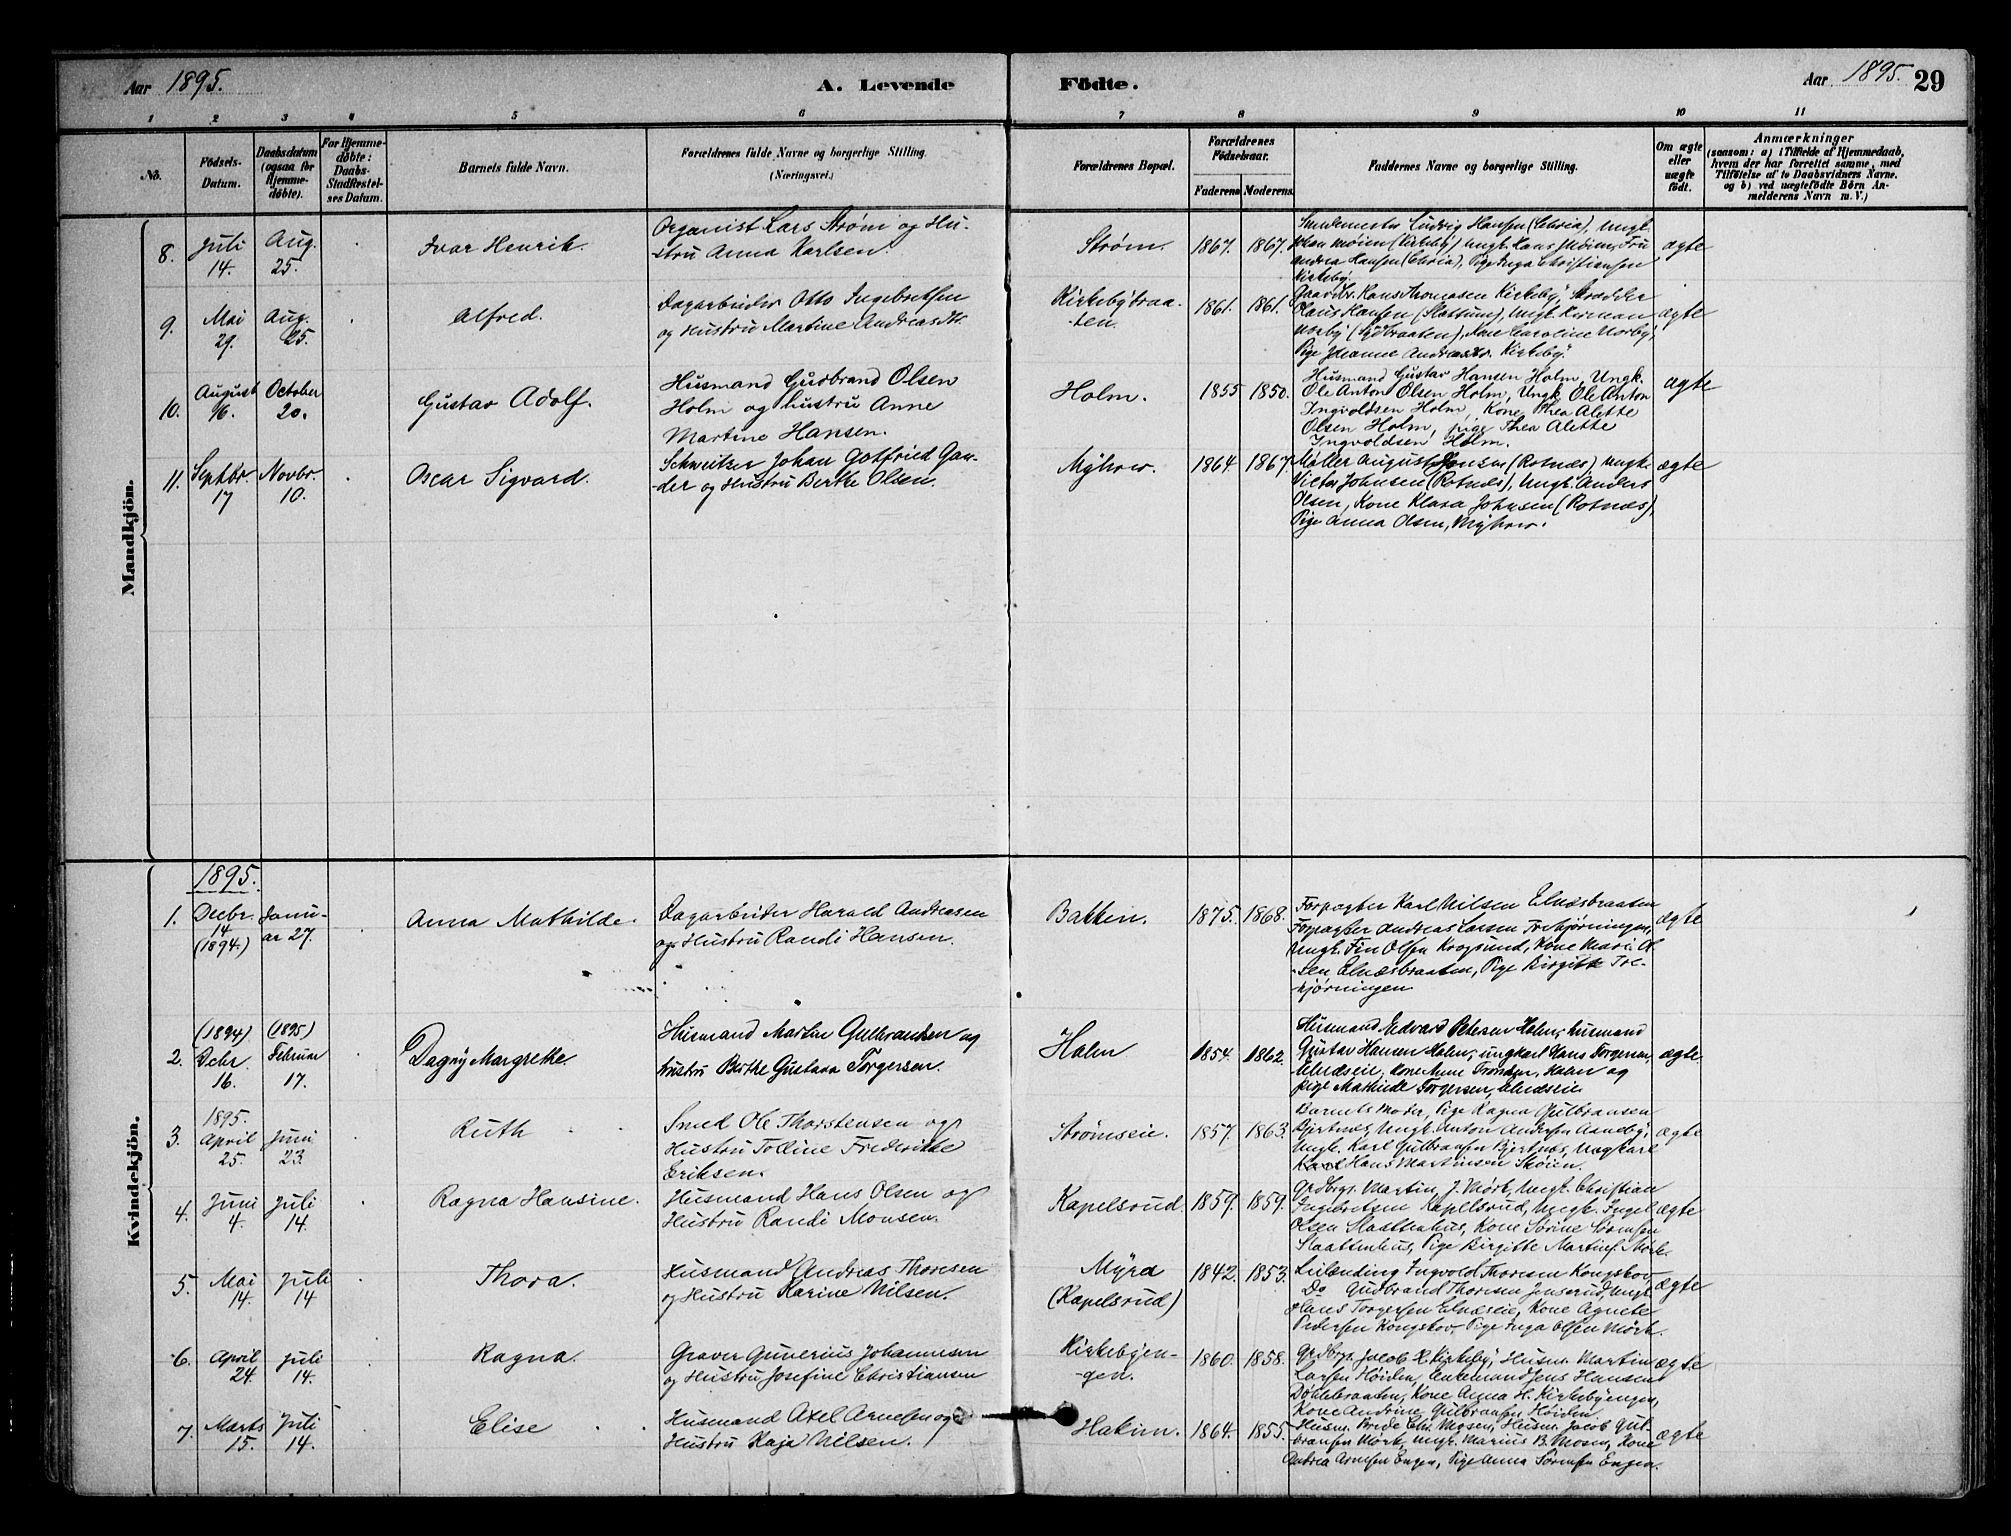 Aar 1895. A. Levende Födte. Aar 1895. 29
1 2 3 4 5 6 7 8 9 10 11
No. Födsels-Datum. Daabsdatum (ogsaa for Hjemme-døbte). For Hjemme-døbte: Daabs-Stadfæstel-ses Datum. Barnets fulde Navn. Forældrenes fulde Navne og borgerlige Stilling. (Næringsvei.) Forældrenes Bopæl. Forældrenes Födselsaar. Faderens Moderens. Faddernes Navne og borgerlige Stilling. Om ægte eller uægte födt. Anmærkninger (saasom: a) i Tilfælde af Hjemmedaab, hvem der har forrettet samme, med Tilföielse af to Daabsvidners Navne. og b) ved uægtefödte Börn An-melderens Navn m. V.)
Mandkjön.
8. Juli 14. Aug. 25. Ivar Henrik. Organist Lars Strøm og Hu-
stru Anna Karlsen. Strøm. 1867. 1867. Ludvig Hansen (Chria), Ungk.
Johan Möien (Kirkeby), Ungk. Hans Möien, Fru
Andrea Hansen (Chria), Pige Inga Christiansen
Kirkeby. ægte
9. Mai 29. Aug. 25. Alfred. Dagarbeider Otto Ingebretsen
og Hustru Martine Andreasdtr. Kirkebybraa-
ten. 1861. 1861. Gaardbr. Hans Thomasen Kirkeby, Skrædder
Claus Hansen (Slattum), Ungk. Herman
Kone Caroline Norby,
Pige Johanne Andreasdtr. Kirkeby. ægte
10. August 16. October 20. Gustav Adolf. Husmand Gudbrand Olsen
Holm og hustru Anne
Martine Hansen. Holm. 1855 1850. Husmand Gustav Hansen Holm, Ungk.
Ole Anton Olsen Holm, Ungk. Ole Anton
Ingvoldsen Holm, Kone Thea Alette
Olsen Holm, pige Thea Alette
Ingvoldsen Holm. ægte
11. Septbr. 17 Novbr. 10. Oscar Sigvard. Schweitser Johan Gotfried Gan-
der og Hustru Berthe Olsen. Myhrer. 1864 1867. Møller August Jonsen (Rotnæs), Ungk.
Victor Johnsen (Rotnæs), Ungk. Anders
Olsen, Kone Klara Johnsen (Rotnæs),
Pige Anna Olsen, Myhrer. ægte
Kvindekjön.
1895.
1. Decbr. 14 (1894.) Janu-
ar 27. Anna Mathilde. Dagarbeider Harald Andreasen
og Hustru Randi Hansen. Bakken. 1875. 1868. Forpagter Karl Nilsen Elnæsbraaten
Forpagter Andreas Larsen Trehjørningen,
Ungk. Fin Olsen Krogsund, Kone Marie Ol-
sen Elnæsbraaten, Pige Birgitte Tre-
hjørningen ægte
2. (1894) Decbr. 16. (1895) Februar 17. Dagny Margrethe. Husmand Martin Gulbrandsen og
hustru Berthe Gustava Torgersen. Holm 1854. 1862. Husmand Edvard Petersen Holm, husmand
Gustav Hansen Holm, ungkarl Hans Torgersen,
Elnæseie, kone Anne Holm og
pige Mathilde Torgersen, Elnæseie ægte
3. 1895. April 25. Juni 23. Ruth Smed Ole Thorstensen og
Hustru Tolline Frederikke
Eriksen. Strømseie. 1857. 1863. Barnets Moder, Pige Ragna Gulbransen
Bjertnæs, Ungk. Anton Andersen Aaneby,
Ungk. Karl Gulbransen Bjertnæs, Ungkarl
Hans Martinsen Skøien. ægte
4. Juni 4. Juli 14. Ragna Hansine. Husmand Hans Olsen og
Hustru Randi Monsen. Kapelsrud. 1859. 1859. Grdbrgr. Martin J. Mørk, Ungk. Christian
Ingebretsen Kapelsrud, Ungk. Ingel
Olsen Slaattenhus, Kone Sørine Sørensen
Slaattenhus, Pige Birgitte Martins. Mørk. ægte
5. Mai 14. Juli 14 Thora. Husmand Andreas Thoresen
og Hustru Karine Nilsen. Myra
(Kapelsrud) 1842. 1853. Leilænding Ingvold Thoresen Kongskov,
Do Gudbrand Thoresen Jonsrud, Ungk.
Hans Torgersen Elnæseie, Kone Agnete
Pedersen Kongskov, Pige Inga Olsen Mørk. ægte
6. April 24. Juli 14. Ragna. Graver Gunerius Johannesen
og Hustru Josefine Christiansen Kirkebyen-
gen. 1860. 1858. Grdbrgr. Jacob H. Kirkeby, Husm. Martin
Larsen Høiden, Enkemand Jens Hansen
Døhlebraaten, Kone Anna H. Kirkebyengen,
Kone Andrine Gulbransen Høiden. ægte
7. Marts 15. Juli 14. Elise Husmand Axel Arnesen og
Hustru Kaja Nilsen. Hakim. 1864. 1855. Husm. Mosen, Husm. Jacob Gul-
bransen Mørk, Ungk. Marius B. Mosen, Kone
Andrea Arnesen Engen, Pige Anna Sørensen Engen. ægte